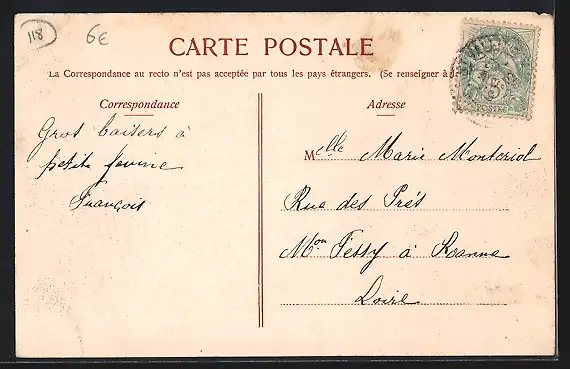 118
6E
CARTE POSTALE
La Correspondance au recto n'est pas acceptée par tous les pays étrangers. (Se renseigner à
Correspondance
Adresse
Gros baisers à
petite femme
François
Melle Marie Montcriol
Rue des Prés
Mon Fessy à Roanne
Loire
POSTES